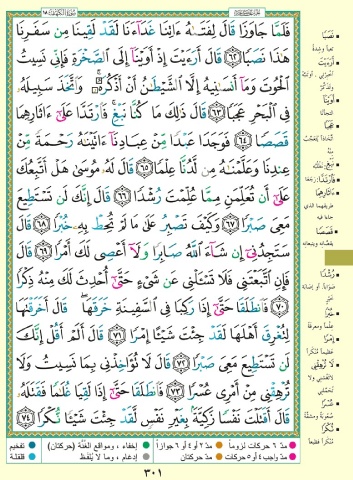 سورة الكهف ١٨
فَلَمَّا جَاوَزَا قَالَ لِفَتَىٰهُ ءَاتِنَا غَدَآءَنَا لَقَدْ لَقِينَا مِن سَفَرِنَا
هَٰذَا نَصَبًا ٦٢ قَالَ أَرَءَيْتَ إِذْ أَوَيْنَآ إِلَى ٱلصَّخْرَةِ فَإِنِّى نَسِيتُ
ٱلْحُوتَ وَمَآ أَنسَىٰنِيهُ إِلَّا ٱلشَّيْطَٰنُ أَنْ أَذْكُرَهُۥ وَٱتَّخَذَ سَبِيلَهُۥ
فِى ٱلْبَحْرِ عَجَبًا ٦٣ قَالَ ذَٰلِكَ مَا كُنَّا نَبْغِ فَٱرْتَدَّا عَلَىٰٓ ءَاثَارِهِمَا
قَصَصًا ٦٤ فَوَجَدَا عَبْدًا مِّنْ عِبَادِنَآ ءَاتَيْنَٰهُ رَحْمَةً مِّنْ
عِندِنَا وَعَلَّمْنَٰهُ مِن لَّدُنَّا عِلْمًا ٦٥ قَالَ لَهُۥ مُوسَىٰ هَلْ أَتَّبِعُكَ
عَلَىٰٓ أَن تُعَلِّمَنِ مِمَّا عُلِّمْتَ رُشْدًا ٦٦ قَالَ إِنَّكَ لَن تَسْتَطِيعَ
مَعِىَ صَبْرًا ٦٧ وَكَيْفَ تَصْبِرُ عَلَىٰ مَا لَمْ تُحِطْ بِهِۦ خُبْرًا ٦٨ قَالَ
سَتَجِدُنِىٓ إِن شَآءَ ٱللَّهُ صَابِرًا وَلَآ أَعْصِى لَكَ أَمْرًا ٦٩ قَالَ
فَإِنِ ٱتَّبَعْتَنِى فَلَا تَسْـَٔلْنِى عَن شَىْءٍ حَتَّىٰٓ أُحْدِثَ لَكَ مِنْهُ ذِكْرًا
٧٠ فَٱنطَلَقَا حَتَّىٰٓ إِذَا رَكِبَا فِى ٱلسَّفِينَةِ خَرَقَهَا قَالَ أَخَرَقْتَهَا
لِتُغْرِقَ أَهْلَهَا لَقَدْ جِئْتَ شَيْـًٔا إِمْرًا ٧١ قَالَ أَلَمْ أَقُلْ إِنَّكَ
لَن تَسْتَطِيعَ مَعِىَ صَبْرًا ٧٢ قَالَ لَا تُؤَاخِذْنِى بِمَا نَسِيتُ وَلَا
تُرْهِقْنِى مِنْ أَمْرِى عُسْرًا ٧٣ فَٱنطَلَقَا حَتَّىٰٓ إِذَا لَقِيَا غُلَٰمًا فَقَتَلَهُۥ
قَالَ أَقَتَلْتَ نَفْسًا زَكِيَّةًۢ بِغَيْرِ نَفْسٍ لَّقَدْ جِئْتَ شَيْـًٔا نُّكْرًا ٧٤
نَصَبًا
تعبا وشدة
أَرَءَيْتَ
أَوَيْنَا
التجأنا
عَجَبًا
نَبْغِ
فَٱرْتَدَّا
ءَاثَارِهِمَا
قَصَصًا
رُشْدًا
خُبْرًا
علما ومعرفة
إِمْرًا
لَا تُرْهِقْنِى
عُسْرًا
صعوبة ومشقة
نُكْرًا
مدّ ٦ حركات لزوماً
مدّ ٢ أو ٤ أو ٦ جوازاً
إخفاء، ومواقع الغُنَّة (حركتان)
تفخيم
مدّ واجب ٤ أو ٥ حركات
مدّ حركتان
إدغام، وما لا يُلفَظ
قلقلة
٣٠١